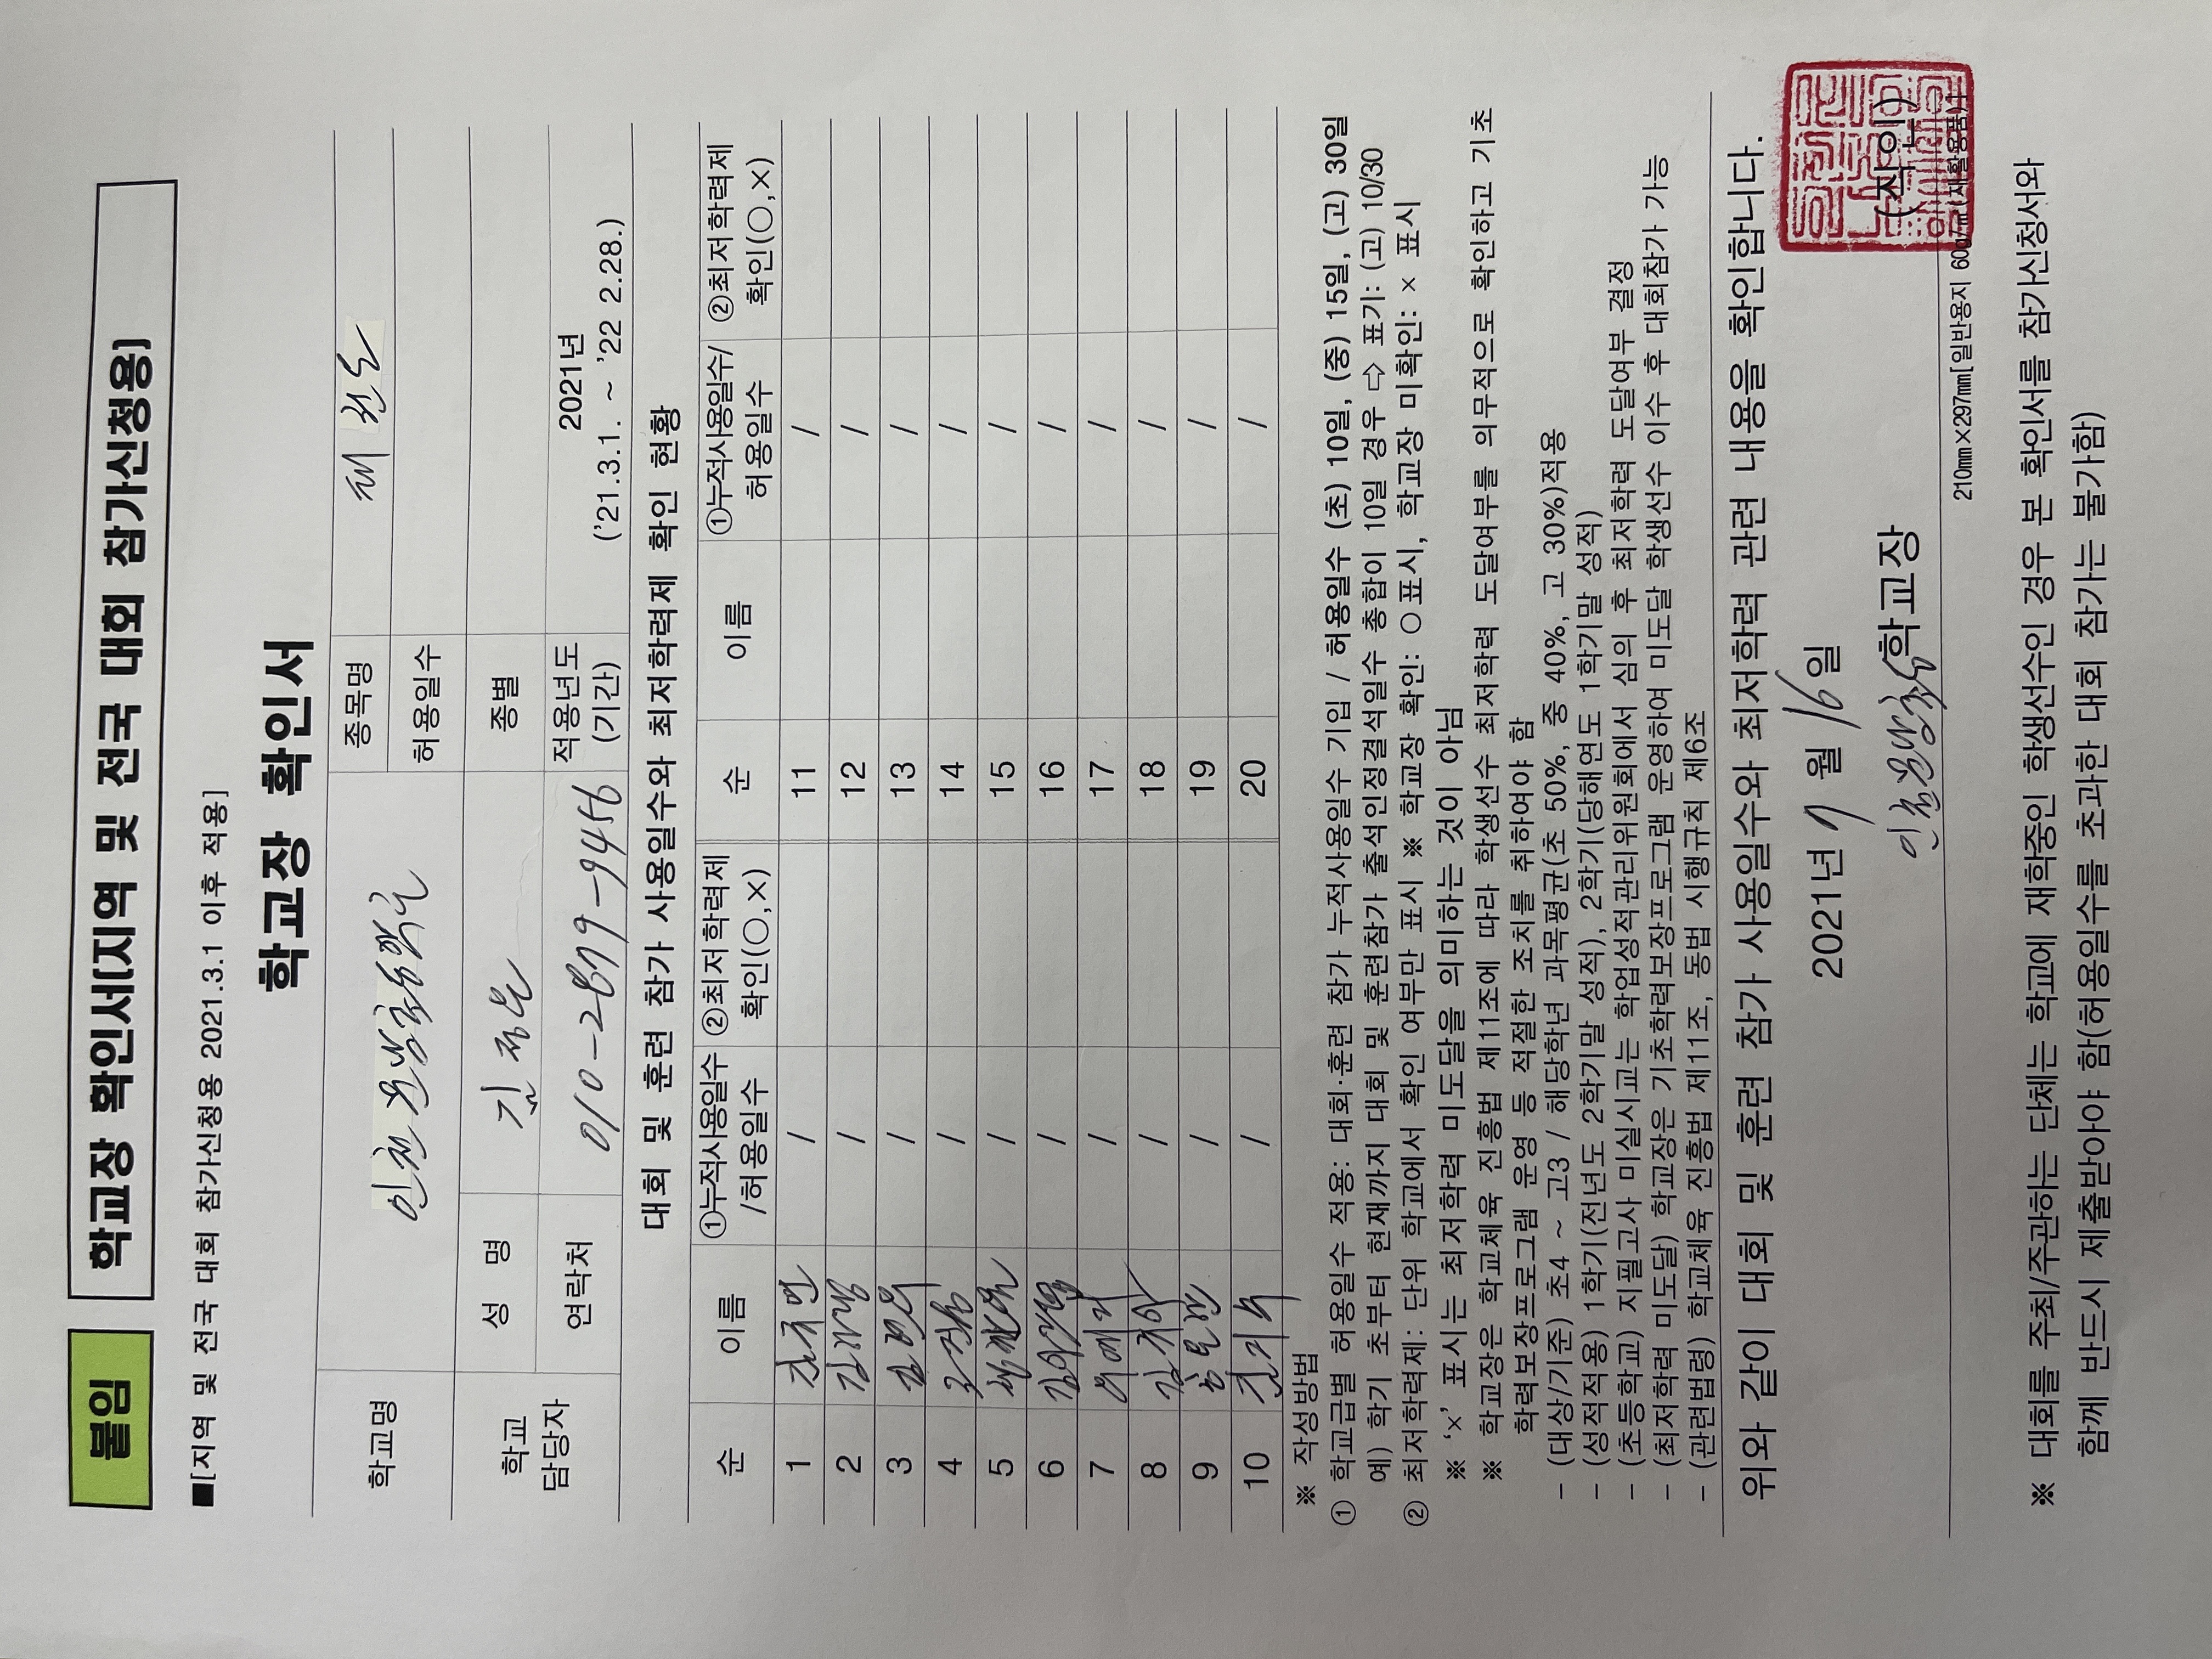 붙임 학교장 확인서[지역 및 전국 대회 참가신청용]
■[지역 및 전국 대회 참가신청용 2021.3.1 이후 적용]
학교장 확인서
학교명 종목명 태권도
허용일수
학교 담당자 성 명 김 종별
연락처 010-2879-9456 적용년도 (기간) 2021년 ('21.3.1. ~ '22 2.28.)
대회 및 훈련 참가 사용일수와 최저학력제 확인 현황
순 이름 ①누적사용일수/허용일수 ②최저학력제 확인(○,×) 순 이름 ①누적사용일수/허용일수 ②최저학력제 확인(○,×)
1 / 11 /
2 / 12 /
3 / 13 /
4 / 14 /
5 / 15 /
6 / 16 /
7 / 17 /
8 / 18 /
9 / 19 /
10 / 20 /
※ 작성방법
① 학교급별 허용일수 적용: 대회·훈련 참가 누적사용일수 기입 / 허용일수 (초) 10일, (중) 15일, (고) 30일
예) 학기 초부터 현재까지 대회 및 훈련참가 출석인정결석일수 총합이 10일 경우 ⇨ 표기: (고) 10/30
② 최저학력제: 단위 학교에서 확인 여부만 표시 ※ 학교장 확인: ○표시, 학교장 미확인: × 표시
※ '×' 표시는 최저학력 미도달을 의미하는 것이 아님
※ 학교장은 학교체육 진흥법 제11조에 따라 학생선수 최저학력 도달여부를 의무적으로 확인하고 기초
학력보장프로그램 운영 등 적절한 조치를 취하여야 함
- (대상/기준) 초4 ~ 고3 / 해당학년 과목평균(초 50%, 중 40%, 고 30%)적용
- (성적적용) 1학기(전년도 2학기말 성적), 2학기(당해연도 1학기말 성적)
- (초등학교) 지필고사 미실시교는 학업성적관리위원회에서 심의 후 최저학력 도달여부 결정
- (최저학력 미도달) 학교장은 기초학력보장프로그램 운영하여 미도달 학생선수 이수 후 대회참가 가능
- (관련법령) 학교체육 진흥법 제11조, 동법 시행규칙 제6조
위와 같이 대회 및 훈련 참가 사용일수와 최저학력 관련 내용을 확인합니다.
2021년 7월 16일
학교장 (직인)
210mm×297mm[일반용지 60g/㎡(재활용품)]
※ 대회를 주최/주관하는 단체는 학교에 재학중인 학생선수인 경우 본 확인서를 참가신청서와
함께 반드시 제출받아야 함(허용일수를 초과한 대회 참가는 불가함)